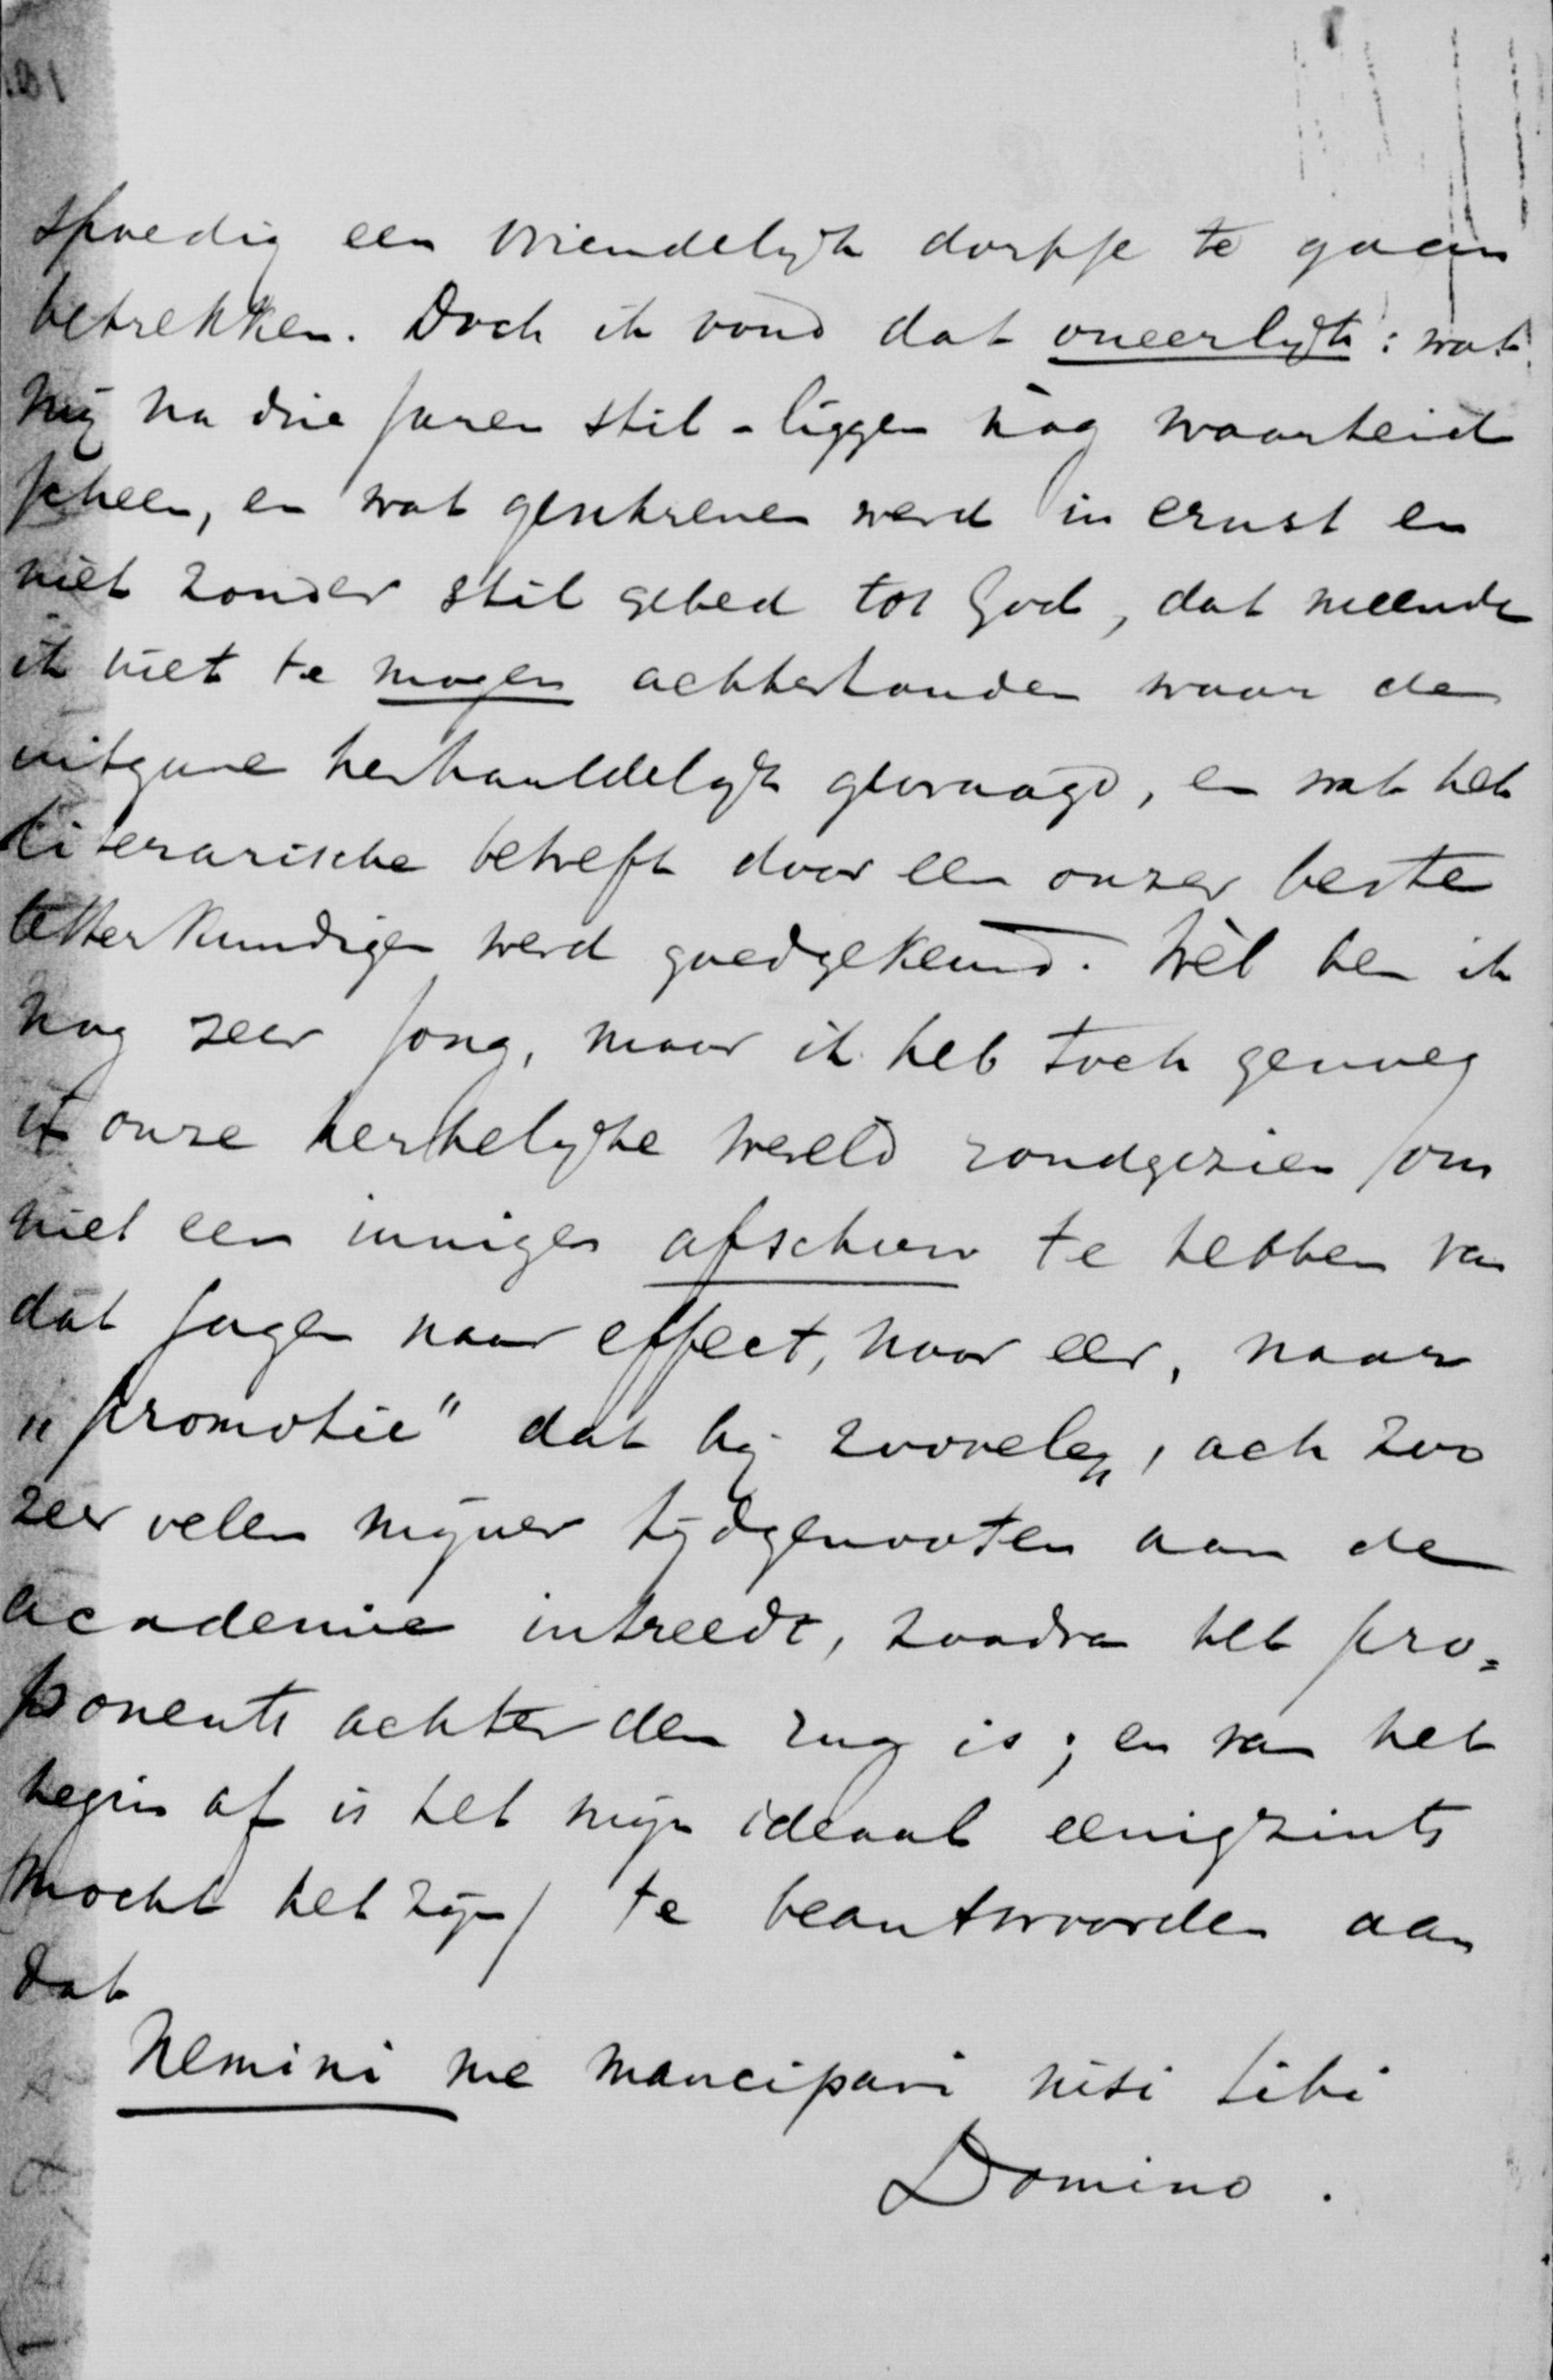 spoedig een vriendelijk dorpje te gaan
betrekken. Doch ik vond dat oneerlijk: wat
mij na drie jaren stil-liggen nòg waarheid
scheen, en wat geschreven werd in ernst en
niet zonder stil gebed tot God, dat meende
ik niet te mogen achterhouden waar de
uitgave herhaaldelijk gevraagd, en wat het
literarische betreft door een onzer beste
letterkundigen werd goedgekeurd. Wèl ben ik
nog zeer jong, maar ik heb toch genoeg
in onze kerkelijke wereld rondgezien om
niet een innigen afschuw te hebben van
dàt jagen naar effect, naar eer, naar
„promotie" dat bij zoovelen, ach zoo
zeer velen mijner tijdgenooten aan de
academie intreedt, zoodra het pro=
ponents achter den rug is; en van het
begin af is het mijn ideaal eenigzints
mocht het zijn) te beantwoorden aan
dat
Nemini me mancipavi nisi tibi
Domino.